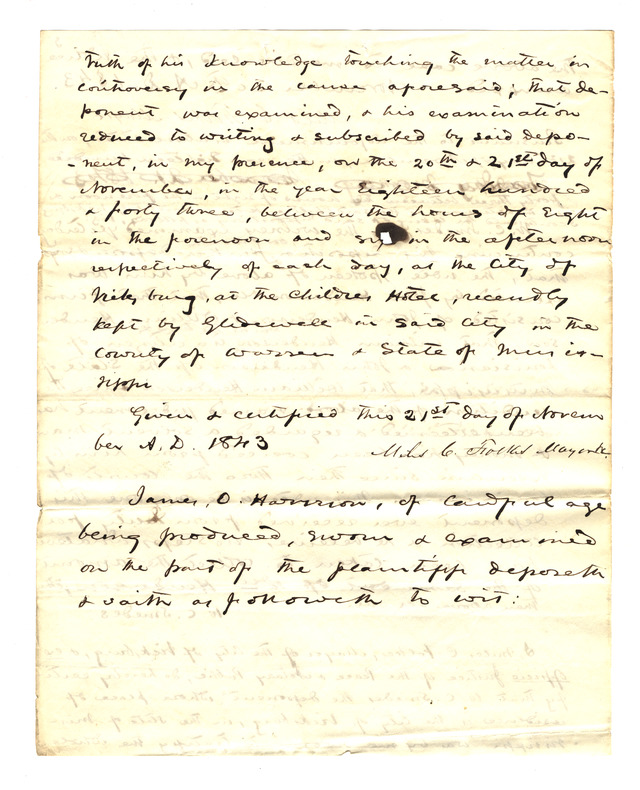 truth of his knowledge touching the matter in
controversy in the cause aforesaid; that de-
ponent was examined, & his examination
reduced to writing & subscribed by said depo-
-nent, in my presence, on the 20th & 21st day of
November, in the year Eighteen hundred
& forty three, between the hours of Eight
in the forenoon and six in the afternoon
respectively of each day, at the City of
Vicksburg, at the Childress Hotel, recently
kept by Glidewell in said City in the
County of Warren & State of Missis-
sippi
Given & certified this 21st day of Novem
ber A.D. 1843
Miles C. Folkes Mayor &c.
James, O. Harrison, of lawful age
being produced, sworn & examined
on the part of the plaintiff deposeth
& saith as followeth to wit: